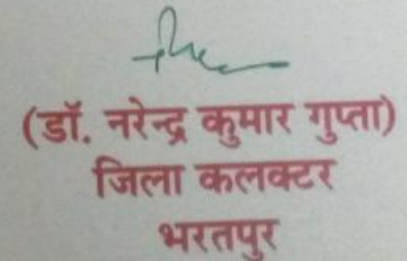 (डॉ. नरेन्द्र कुमार गुप्ता)
जिला कलक्टर
भरतपुर